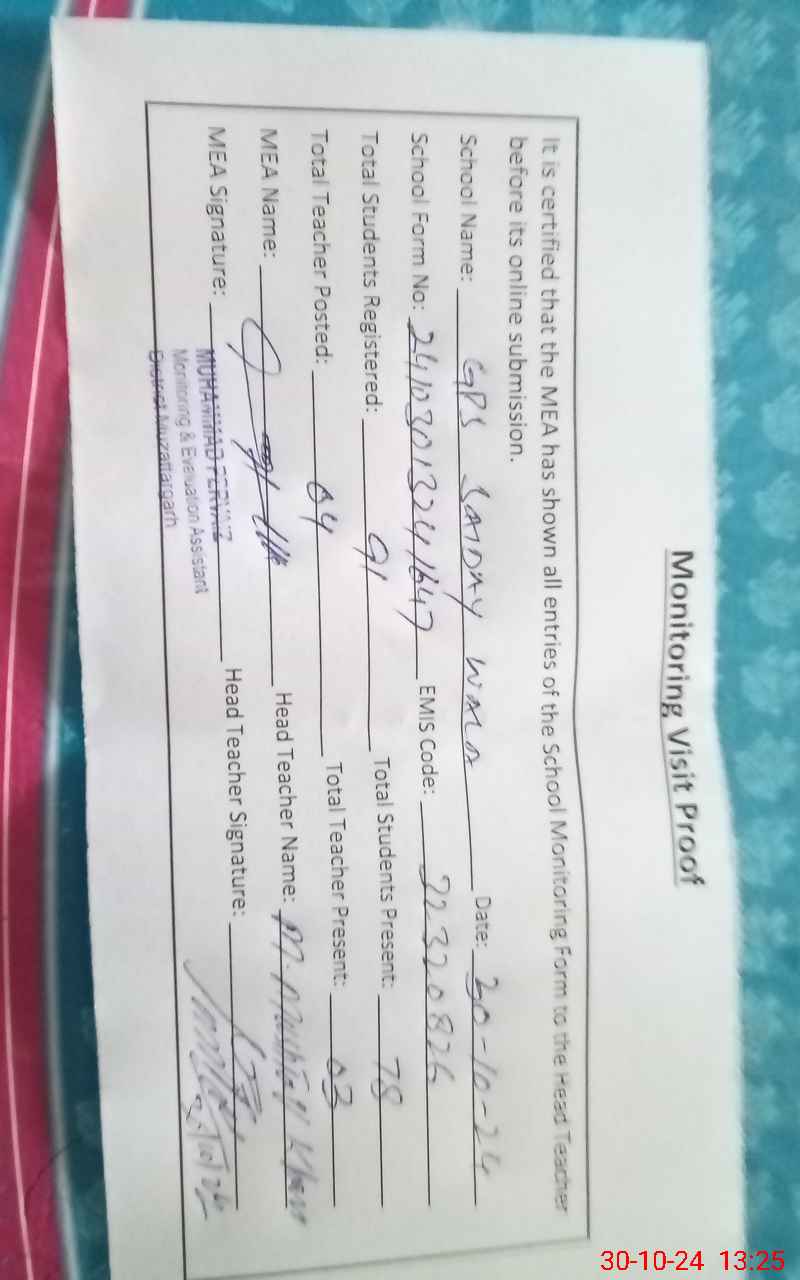 Monitoring Visit Proof
It is certified that the MEA has shown all entries of the School Monitoring Form to the Head Teacher
before its online submission.
School Name: GPS SAIDAY WALA Date: 30-10-24
School Form No: 24103013241647 EMIS Code: 32320826
Total Students Registered: 91 Total Students Present: 78
Total Teacher Posted: 04 Total Teacher Present: 03
MEA Name: Head Teacher Name: M. Khan
MEA Signature: Head Teacher Signature:
MUHAMMAD PERVAIZ
Monitoring & Evaluation Assistant
District Muzaffargarh
30-10-24 13:25